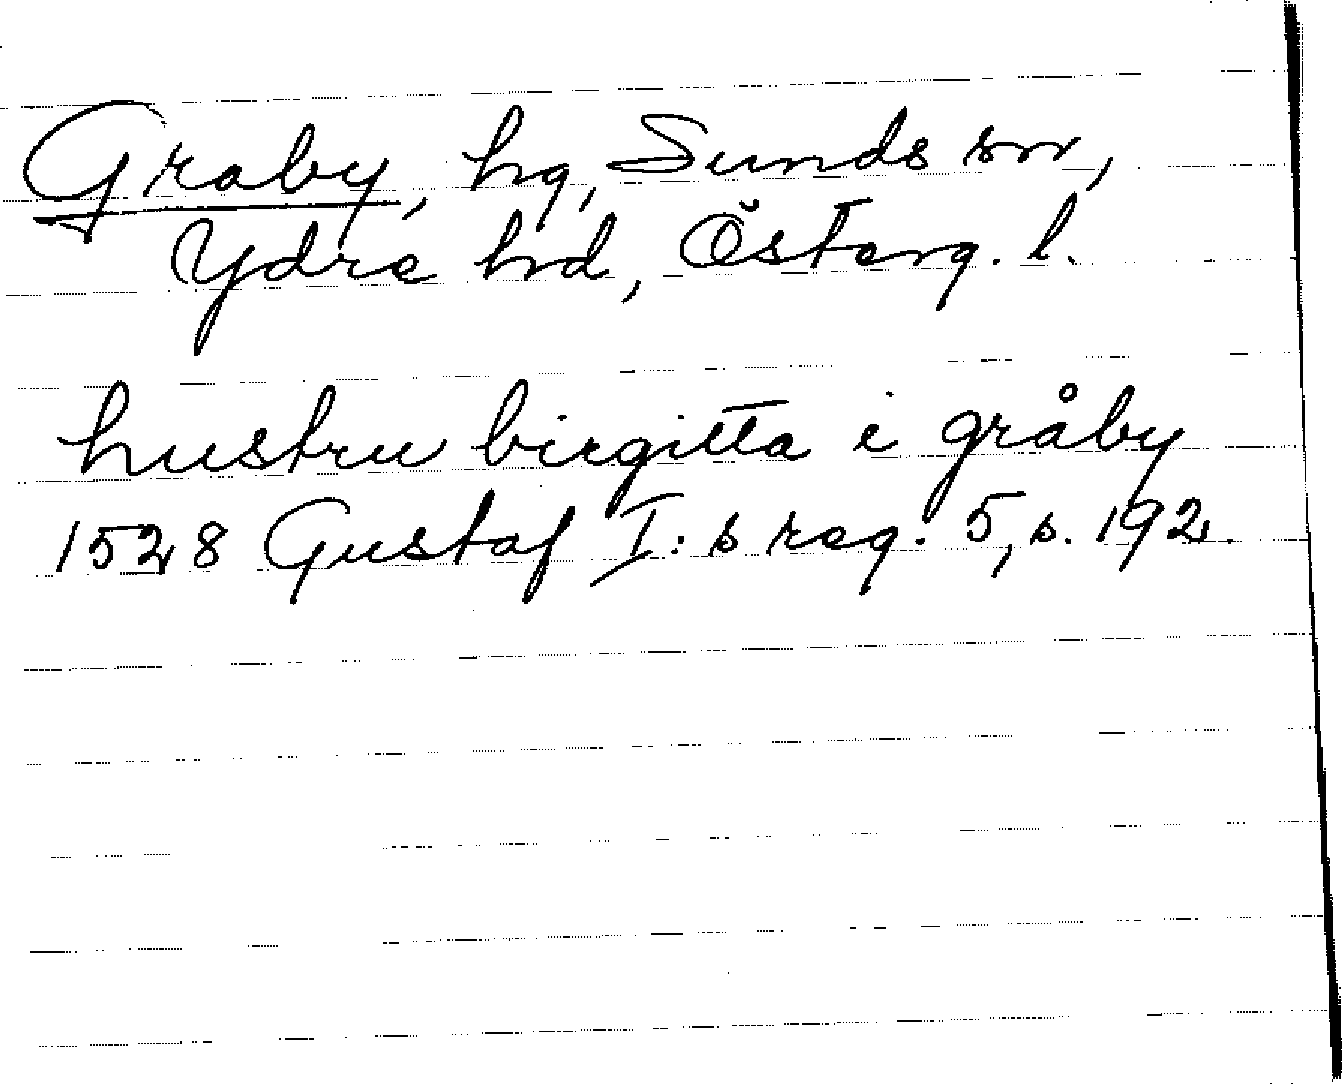 Graby, hg, Sunds sn,
Ydre hd, Österg. l.
hustru birgitta i gråby
1528 Gustaf I:s reg. 5, s. 192.